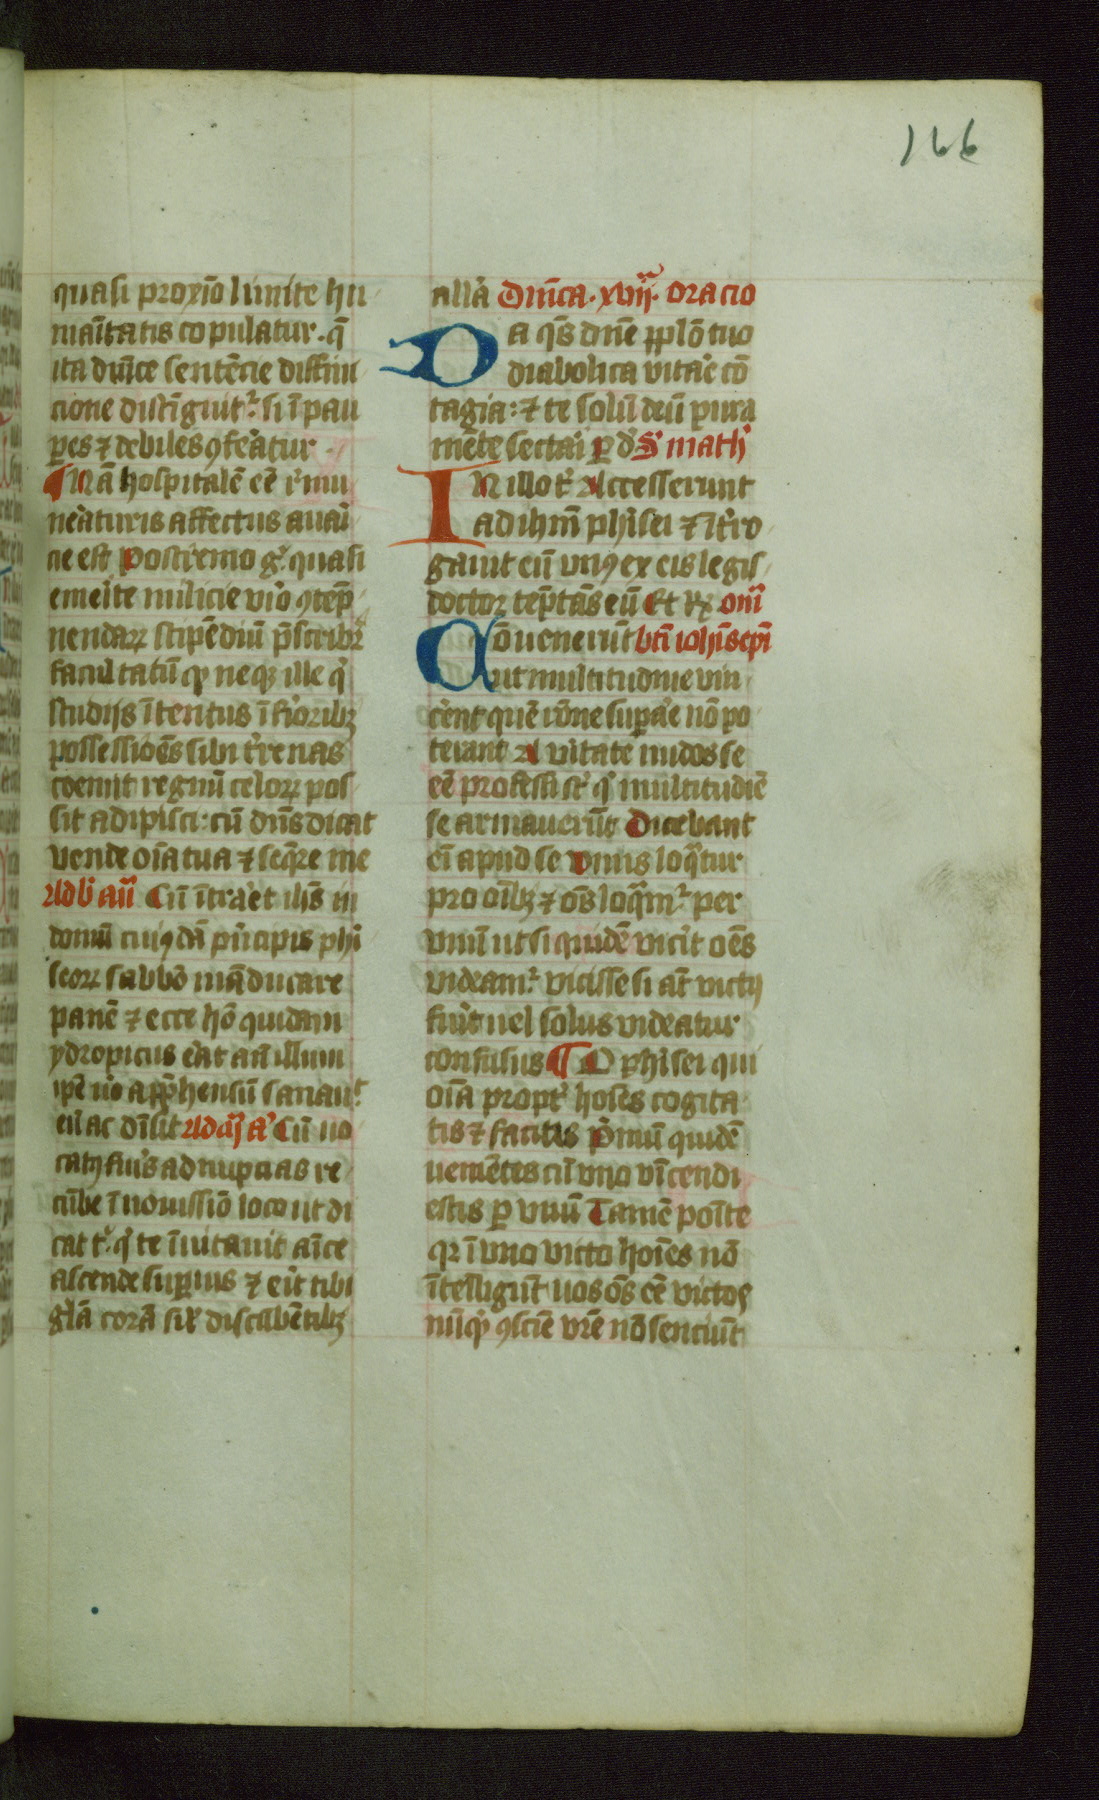 166
quasi proxīo limite hu
maītatis copulatur. q̄
ita duīce sentēcie diffini
cione distīguit᷑ si ī pau
ꝑes ⁊ debiles ꝯferatur.
¶ Nā hospitalē eē r̄mu
neraturis affectus auari
cie est Postremo gͦ quasi
emerite milicie viro ꝯtēp
nendaꝝ stipēdiū p̄scribit᷑
facultatū ꝙ neqꝫ ille qͥ
studijs ītentus īfiorībꝫ
possessiōēs sibi t̄renas
coemit regnū celoꝝ pos
sit adipisci: cū dn̄s dicat
Vende oīa tua ⁊ seq̄re me
Ad bn̄ añ Cū ītraret ih̄s in
domū cuiꝰdā pn̄cipis phi
seoꝝ sabbō māducare
panē ⁊ ecce hō quidam
ydropicus erat an̄ illum
ip̄e uo app̄hensū sanauit
eū ac dīsit Ad mͣ aͣ Cū uo
catꝰ fuīs ad nupcias re
cūbe ī nouissīo loco ut di
cat tͥ qͥ te īuitauit aīce
ascende superius ⁊ erit tibi
glā corā sil̄ discūbētibꝫ
allā Dn̄ica. xviij. oracio
Da qs̄ dn̄e pplō tuo
diabolica vitare cō
tagia: ⁊ te solū deū pura
mēte sectari ꝑ d Sͥ math
IN illo tͬ Accesserunt
ad ihm̄ phīsei ⁊ īt̄ro
gauit eū vnꝰ ex eis legis
doctor tēptās eū Et Rͬ omī
Cōuenerūt bt̄i ioh̄is ep̄i
ut multitudine vin
cerent quē rōne supare nō po
terant A vitate nudos se
eē professi st̄ qͥ multitudīe
se armauerūt Dicebant
eī apud se Vnus loq̄tur
pro oībꝫ ⁊ oēs loq̄m᷑ per
vnū ut si quidē vicīt oēs
videam᷑ vicisse si at̄ victꝰ
fuīt uel solus videatur
confusus ¶ O phīsei qui
oīa propt̄ hoīes cogita
tis ⁊ facitis Pͥmū quidē
uenētes cū vno vīcendi
estis ꝑ vnū Tamē ponīte
qr ī vno victo hoīes nō
ītelligūt uos oēs eē victos
nūqͥd ꝯscīe vr̄e nō senciūt